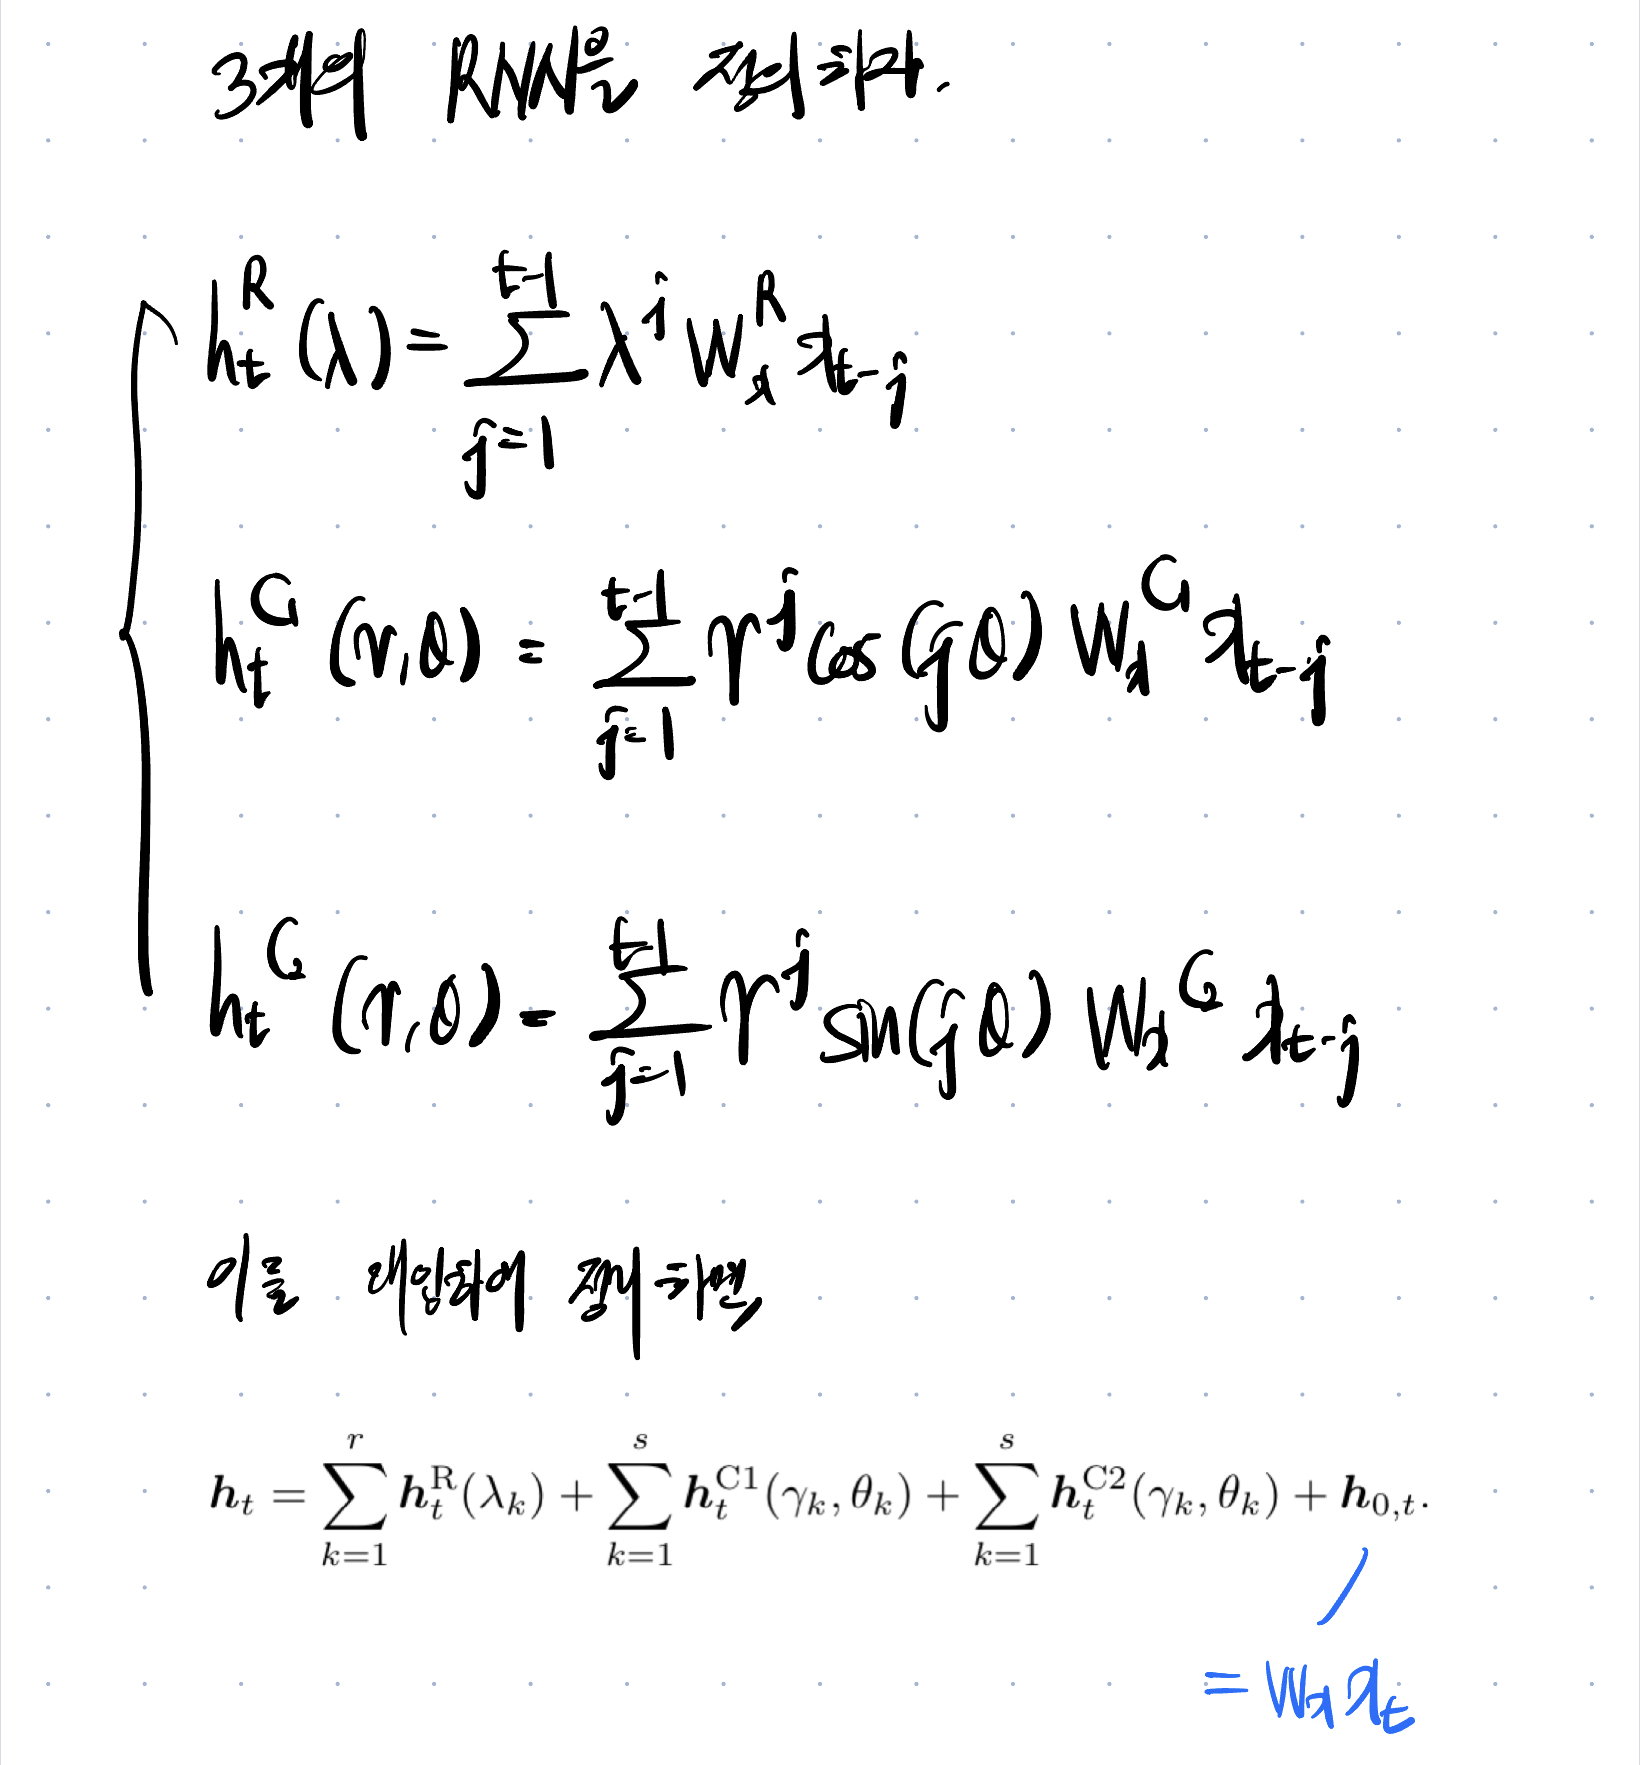 3개의 RNN을 정의하자.
h_t^R (λ) = Σ_{j=1}^{t-1} λ^j W_x^R x_{t-j}
h_t^{C1} (γ, θ) = Σ_{j=1}^{t-1} γ^j cos(jθ) W_x^{C1} x_{t-j}
h_t^{C2} (γ, θ) = Σ_{j=1}^{t-1} γ^j sin(jθ) W_x^{C2} x_{t-j}
이를 대입하여 정리하면,
h_t = Σ_{k=1}^{r} h_t^R(λ_k) + Σ_{k=1}^{s} h_t^{C1}(γ_k, θ_k) + Σ_{k=1}^{s} h_t^{C2}(γ_k, θ_k) + h_{0,t}.
= W_x x_t